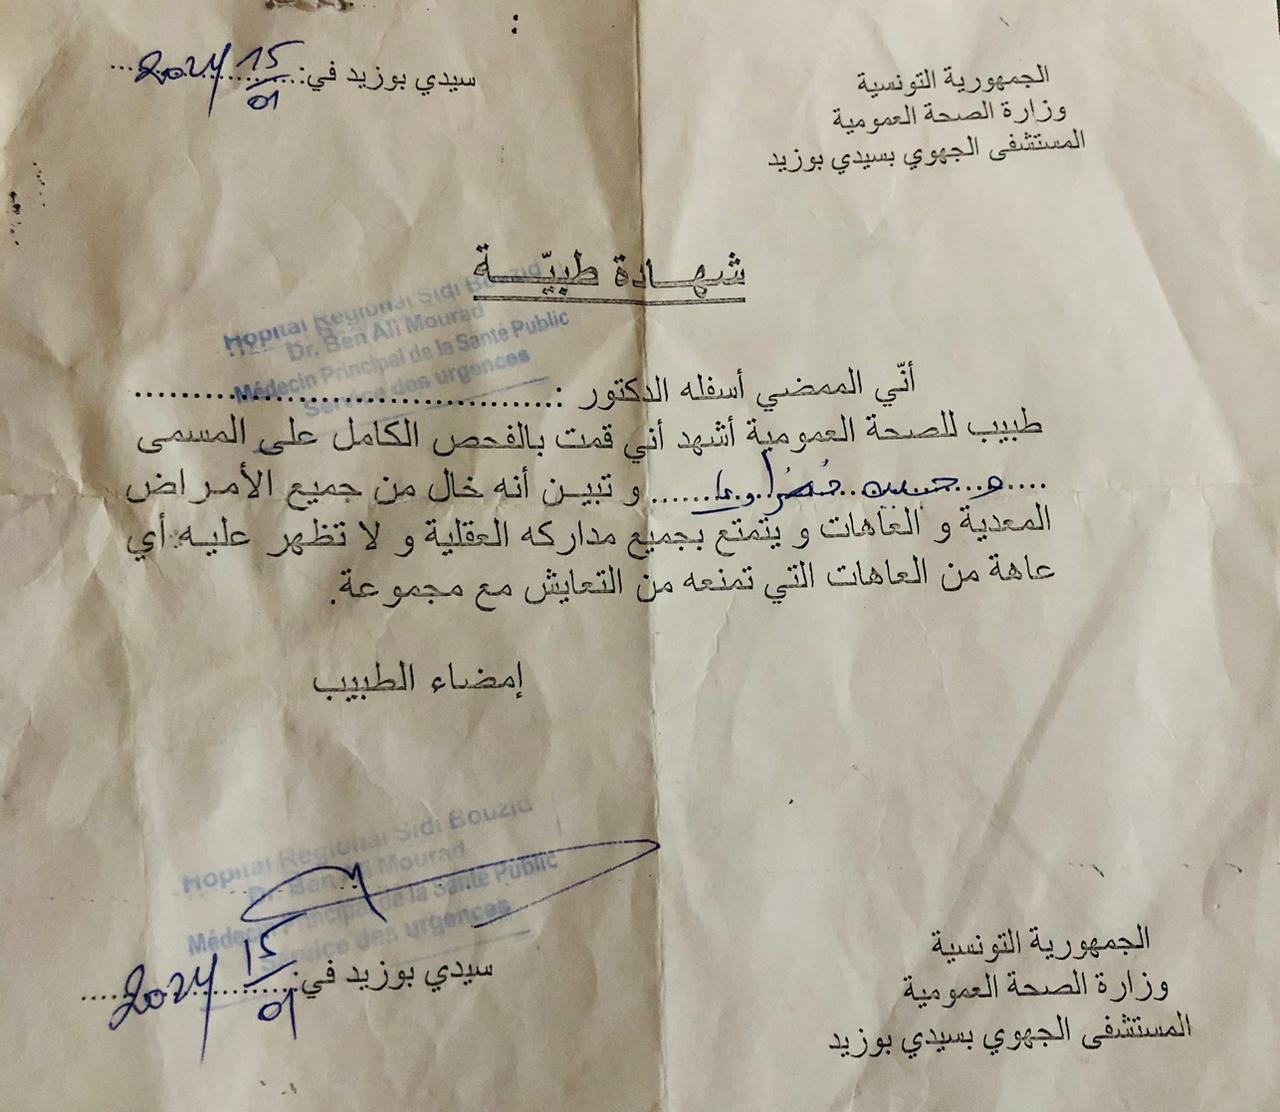 الجمهورية التونسية
وزارة الصحة العمومية
المستشفى الجهوي بسيدي بوزيد
سيدي بوزيد في: 15/01/2024
شهادة طبيّة
Hopital Regional Sidi Bouzid
Dr. Ben Ali Mourad
Médecin Principal de la Sante Public
Service des urgences
أنّي الممضي أسفله الدكتور :
طبيب للصحة العمومية أشهد أني قمت بالفحص الكامل على المسمى
و تبين أنه خال من جميع الأمراض
المعدية و العاهات و يتمتع بجميع مداركه العقلية و لا تظهر عليه أي
عاهة من العاهات التي تمنعه من التعايش مع مجموعة.
إمضاء الطبيب
Hopital Regional Sidi Bouzid
Dr. Ben Ali Mourad
Médecin Principal de la Sante Public
Service des urgences
الجمهورية التونسية
وزارة الصحة العمومية
المستشفى الجهوي بسيدي بوزيد
سيدي بوزيد في: 15/01/2024